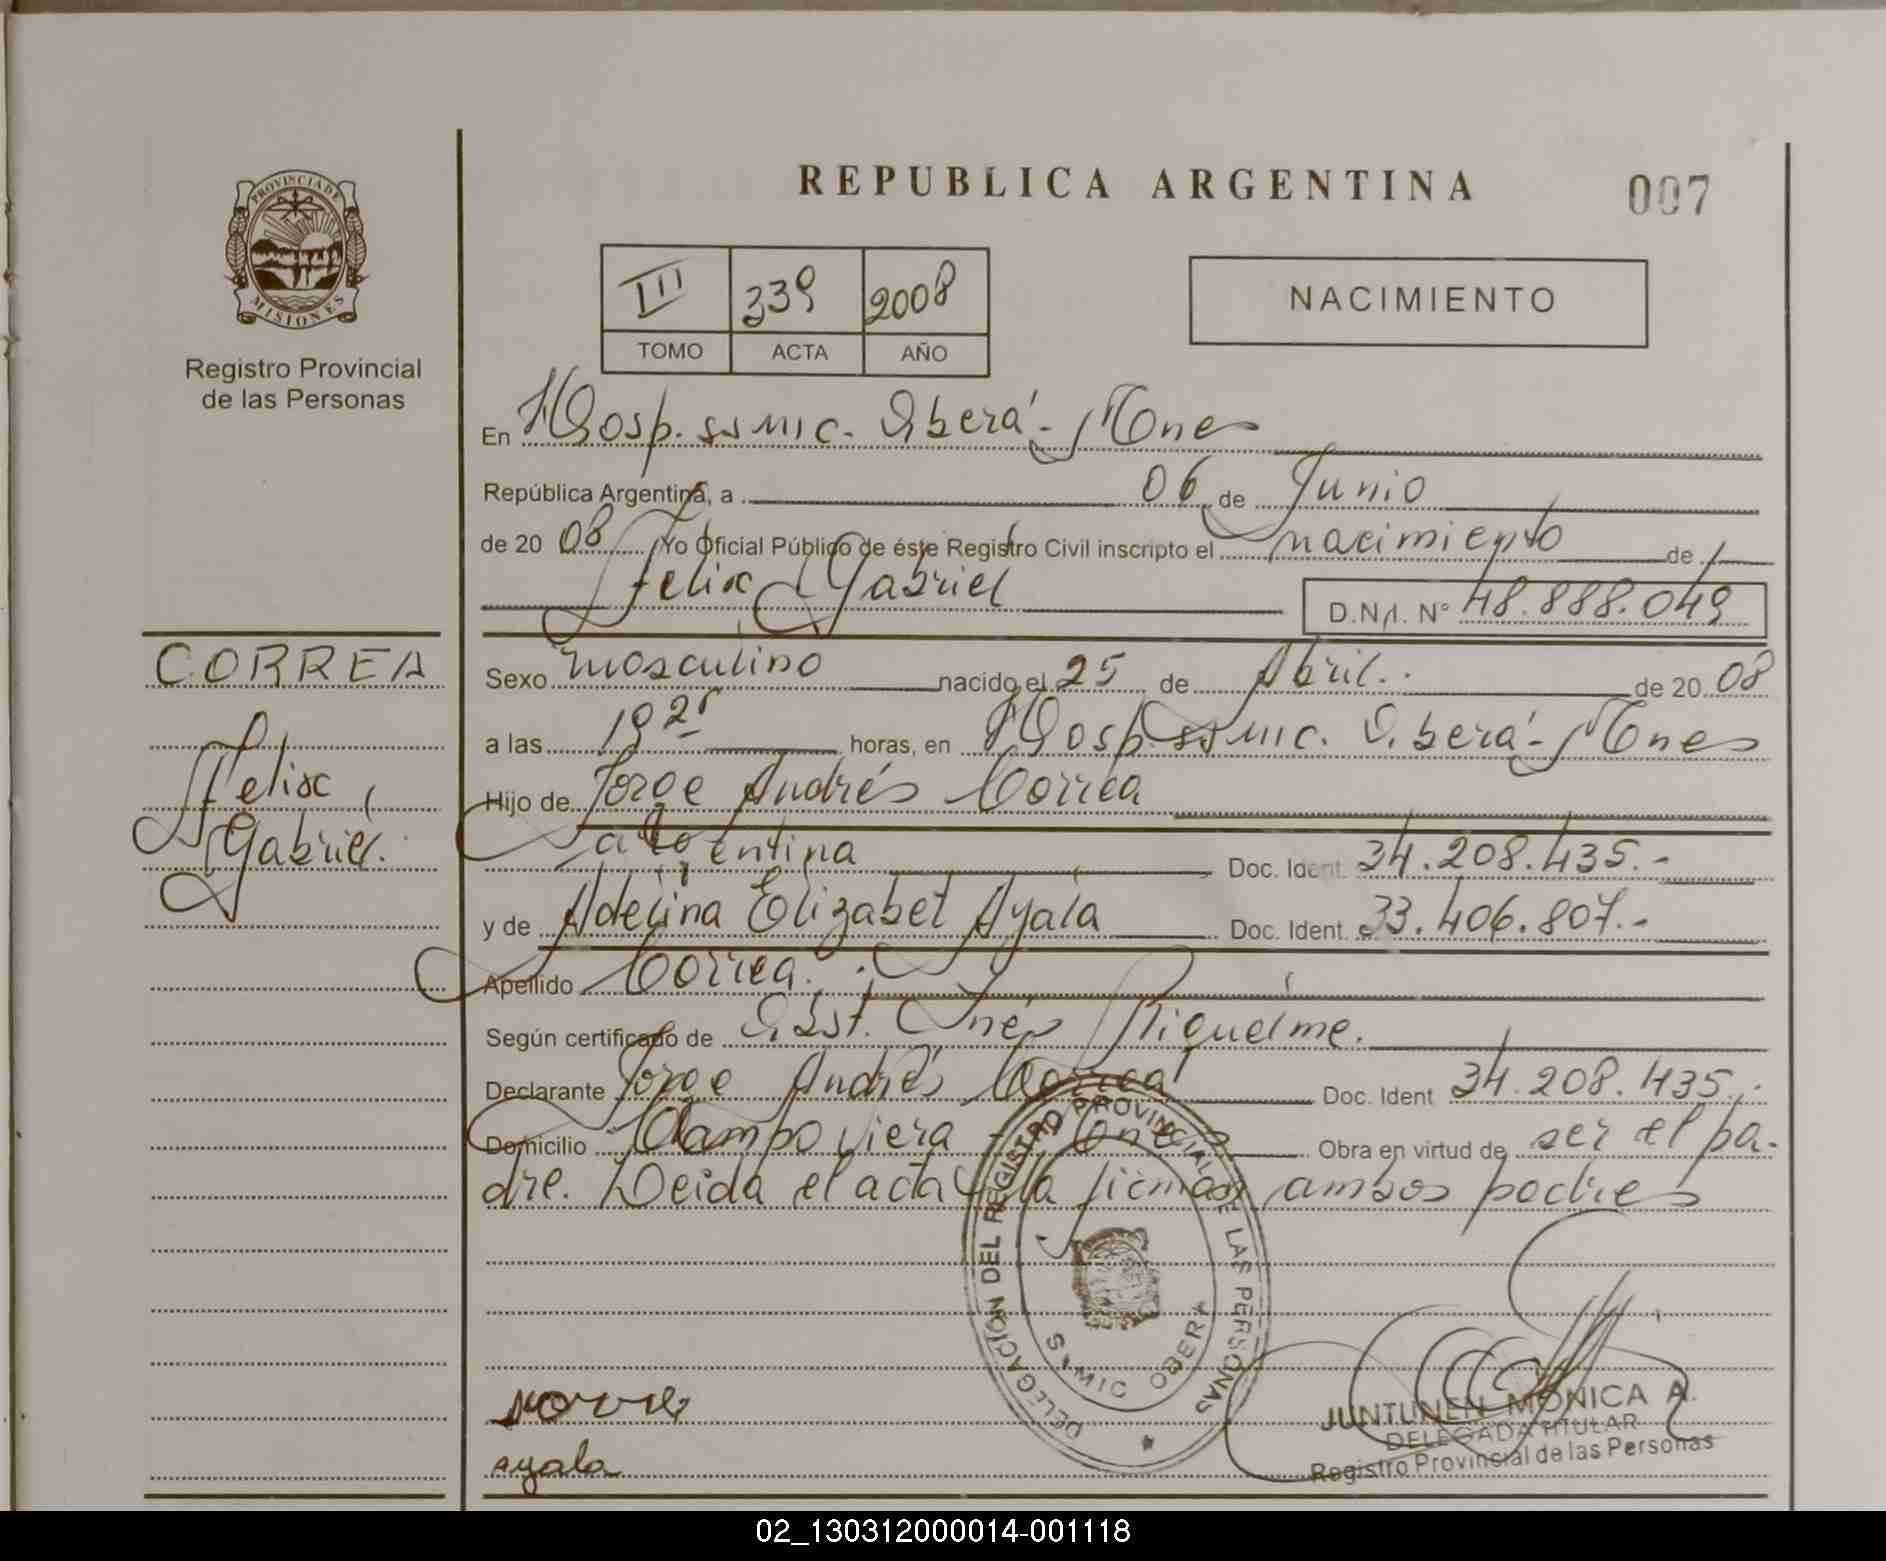 PROVINCIA DE
MISIONES
Registro Provincial
de las Personas
REPUBLICA ARGENTINA
007
III 339 2008
TOMO ACTA AÑO
NACIMIENTO
En Hosp. ssmic. Oberá - Mnes
República Argentina, a 06 de Junio
de 20 08 Yo Oficial Público de éste Registro Civil inscripto el nacimiento de
Felix Gabriel D.N.I. N° 48.888.049
CORREA
Felix
Gabriel.
Sexo masculino nacido el 25 de Abril. de 20 08
a las horas, en Hosp. ssmic. Oberá - Mnes
Hijo de Jorge Andrés Correa
argentina Doc. Ident. 34.208.435.-
y de Adelina Elizabet Ayala Doc. Ident. 33.406.807.-
Apellido Correa.
Según certificado de Obst. Inés Riquelme.
Declarante Jorge Andrés Correa Doc. Ident 34.208.435.-
Domicilio Campo viera - Mnes Obra en virtud de ser el pa-
dre. Leida el acta la firman ambos padres
DELEGACIÓN DEL REGISTRO PROVINCIAL DE LAS PERSONAS
SAMIC OBERA
ayala
JUNTUNEN MONICA A.
DELEGADA TITULAR
Registro Provincial de las Personas
02_130312000014-001118